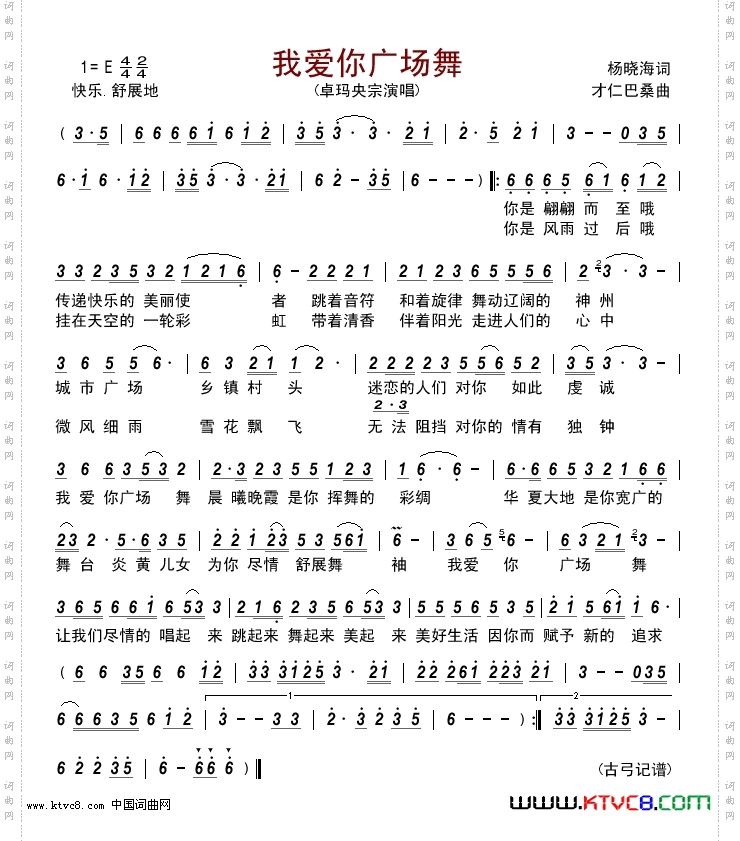 我爱你广场舞
1=E 4/4 2/4
快乐.舒展地
(卓玛央宗演唱)
杨晓海词
才仁巴桑曲
(3·5 | 666616 612 | 353·3·21 | 2·5 21 | 3--035 |
6·16·12 | 353·3·21 | 62-35 | 6---)‖: 6665 61 612 |
你是 翩翩 而 至哦
你是 风雨 过 后哦
33235 321216 | 6-2222 | 21223 65556 | 2 3·3· |
传递快乐的 美丽使 者 跳着音符 和着旋律 舞动辽阔的 神州
挂在天空的 一轮彩 虹 带着清香 伴着阳光 走进人们的 心中
3 6 5 56· | 6 3 21 12· | 22223 55652 | 353·3- |
城市广场 乡镇村头 迷恋的人们 对你 如此 虔诚
2·3
微风细雨 雪花飘飞 无法阻挡 对你的 情有 独钟
3 6 63532 | 2·32355123 | 16·6- | 6·5662166 |
我爱你广场 舞 晨曦晚霞 是你 挥舞的 彩绸 华夏大地 是你宽广的
232·5·635 | 22·123 53561 | 6--- | 3656- | 63213 |
舞台 炎黄儿女 为你 尽情 舒展舞 袖 我爱你 广场 舞
36566 1653 3 | 216 235653 3 | 5556 5635 | 215 6116· |
让我们尽情的 唱起 来 跳起来 舞起来 美起 来 美好生活 因你而 赋予 新的 追求
(6635 6612 | 33312523 | 2221612232 1 | 3--035 |
6663 5612 | 1 3--33 | 2·3235 | 6---):‖ 2 3331253 |
62235 | 6-666)‖
(古弓记谱)
www.ktvc8.com 中国词曲网
WWW.KTVC8.COM
词曲网